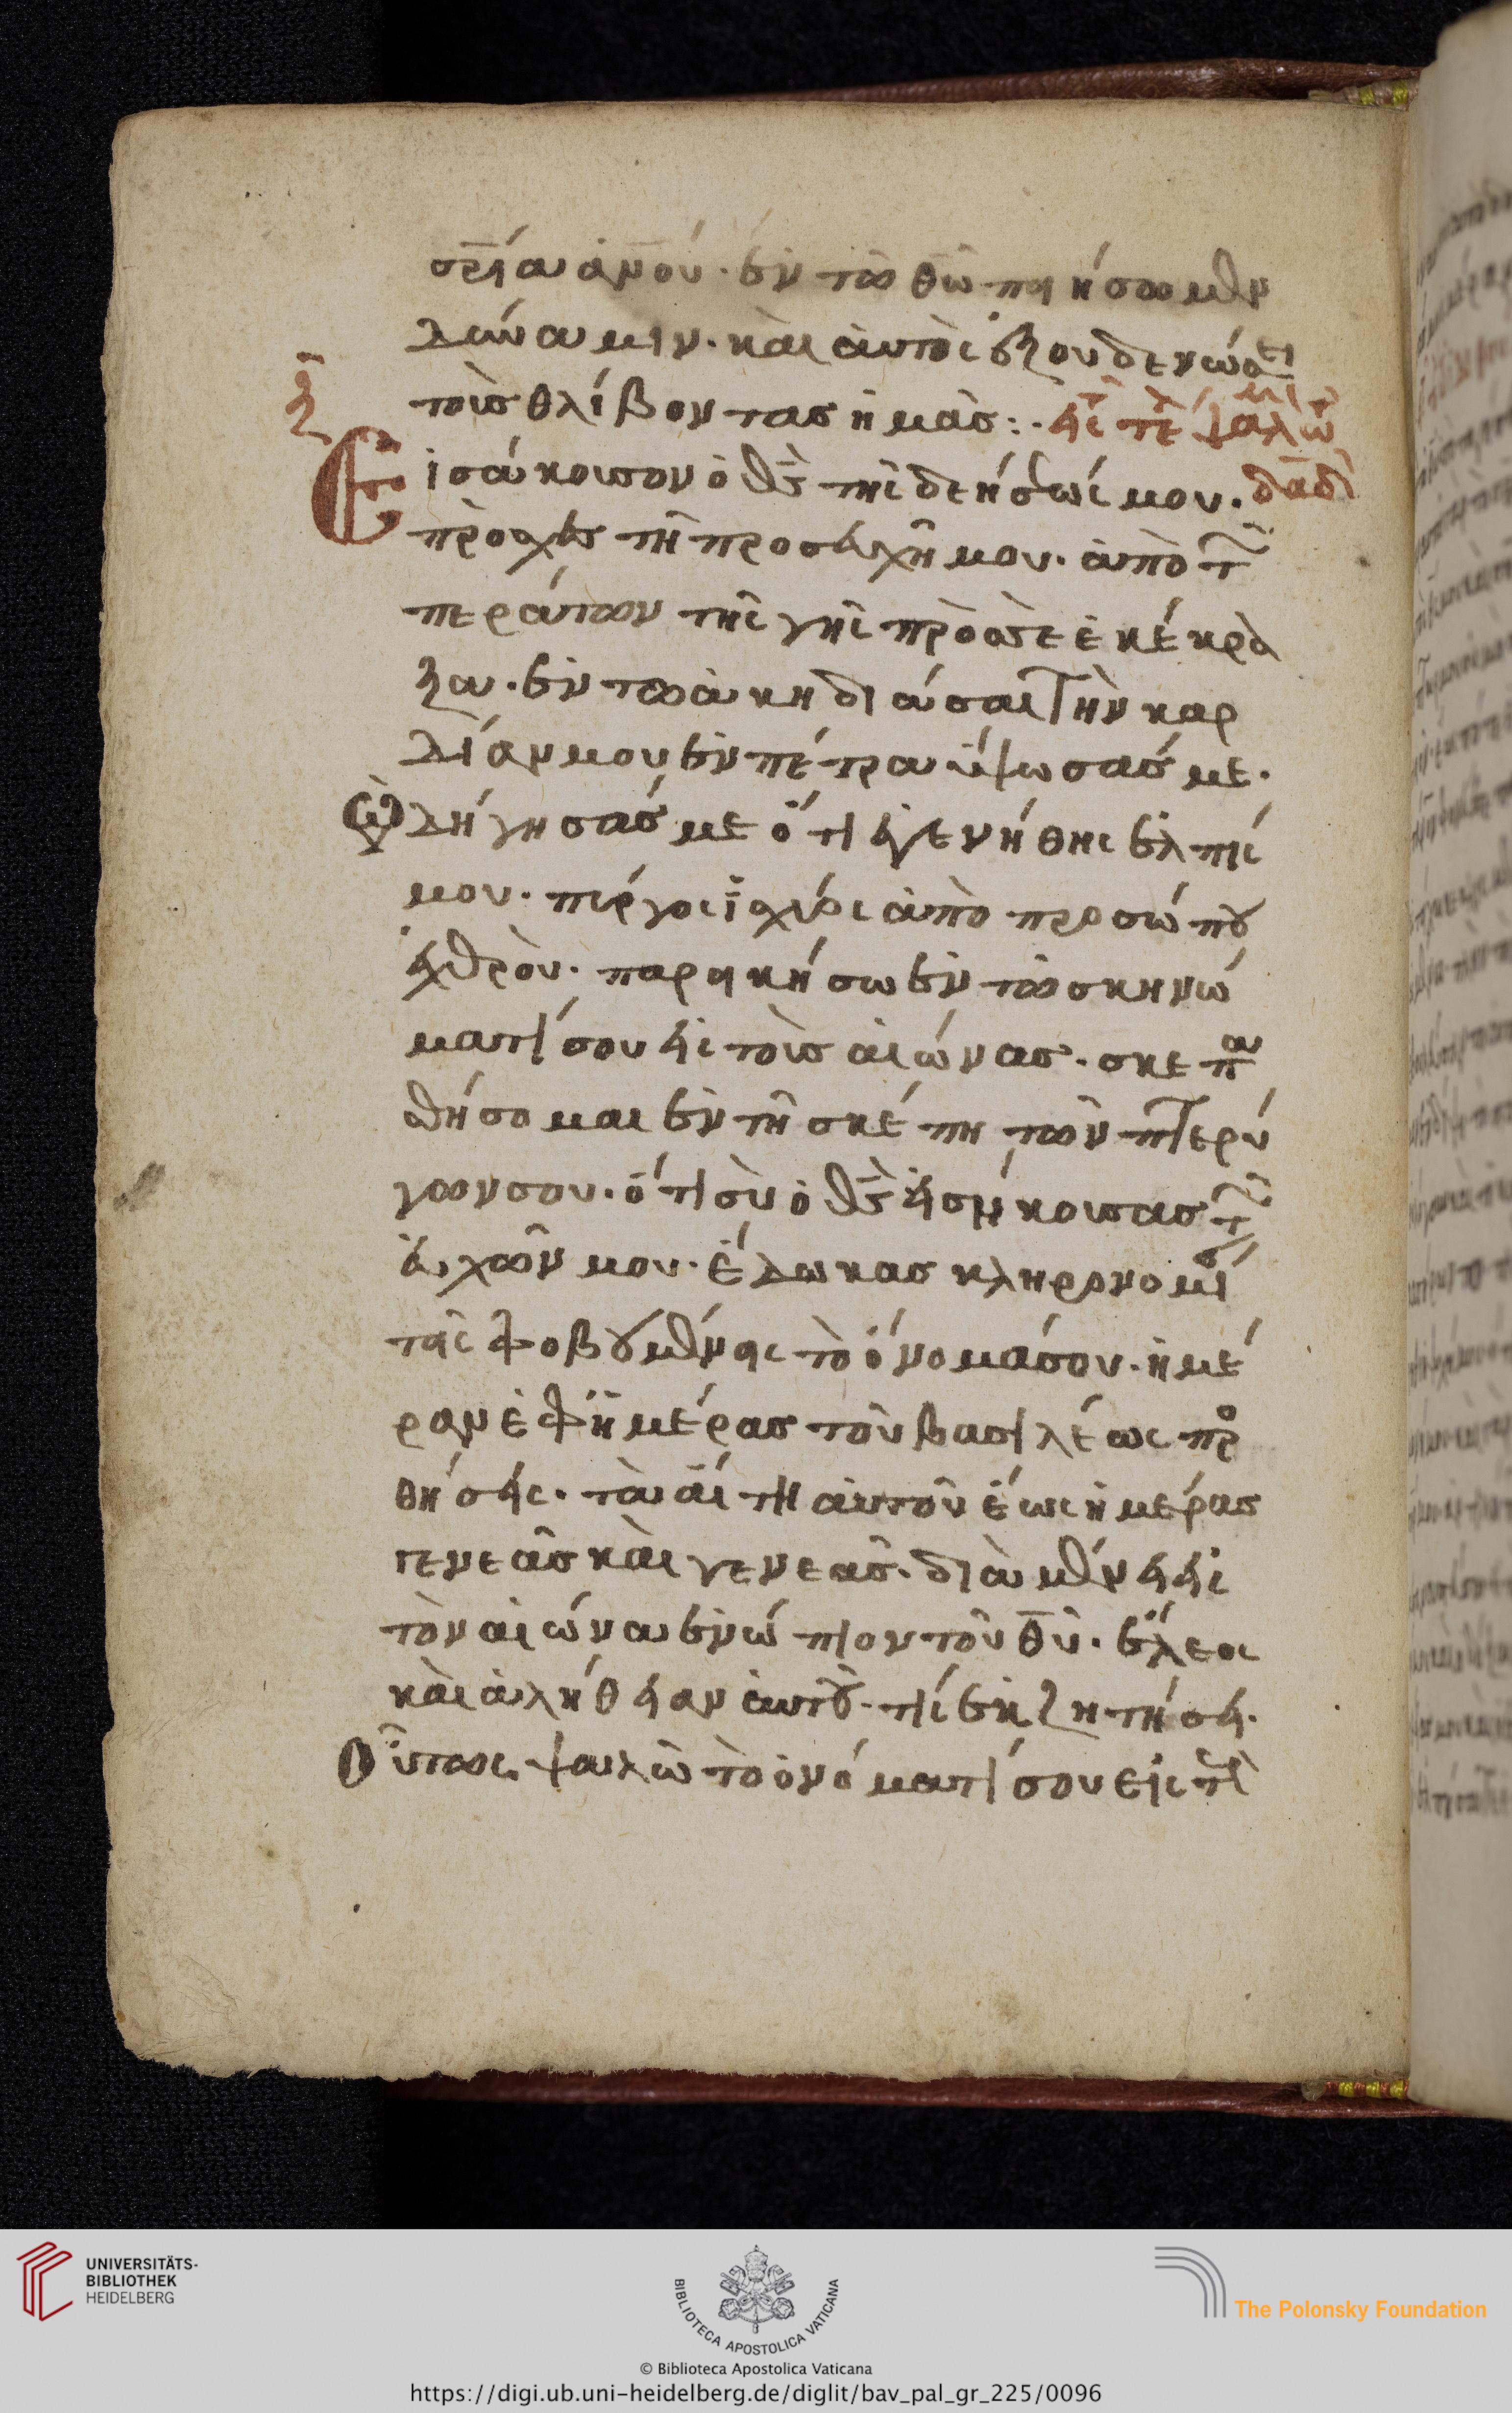 σρ̅ία ἀν̅ου· ἐν τῶ θ̅ω ποιήσωμεν
δύναμιν· καὶ αὐτὸς ἐξουδενώσει
τοὺς θλίβοντας ἡμὰς:· εἰς τὸ τέλ
ξ
Εἰσάκουσον ὁ θ̅ς τῆς δεήσεώς μου·
δᾱδ
πρόσχες τῆ προσευχῆ μου· ἀπὸ τῶν
περάτων τῆς γῆς πρὸς σὲ ἐκέκρα
ξα· ἐν τῶ ἀκηδιάσαι τὴν καρ
δίαν μου ἐν πέτρα ὕψωσάς με·
Ὡδήγησάς με ὅτι ἐγενήθης ἐλπίς
μου· πύργος ἰσχύος ἀπὸ προσώπου
ἐχθροῦ· παροικήσω ἐν τῶ σκηνώ
ματί σου εἰς τοὺς αἰώνας· σκεπα
σθήσομαι ἐν τῆ σκέπη τῶν πτερύ
γων σου· ὅτι σὺ ὁ θ̅ς εἰσήκουσας τῶν
εὐχῶν μου· ἔδωκας κληρονομίαν
τοῖς φοβουμένοις τὸ ὄνομά σου· ἡμέ
ραν ἐφ ἡμέρας τοῦ βασιλέως προσ
θήσεις· τὰ ἔτη αὐτοῦ ἕως ἡμέρας
γενεᾶς καὶ γενεᾶς· διαμένει εἰς
τὸν αἰώνα ἐνώπιον τοῦ θ̅υ· ἔλεος
καὶ ἀλήθειαν αὐτοῦ· τίς ἐκζητήσει·
Οὕτως ψαλῶ τὸ ὀνόματί σου εἰς τὸν
UNIVERSITÄTS-
BIBLIOTHEK
HEIDELBERG
BIBLIOTECA APOSTOLICA VATICANA
The Polonsky Foundation
© Biblioteca Apostolica Vaticana
https://digi.ub.uni-heidelberg.de/diglit/bav_pal_gr_225/0096